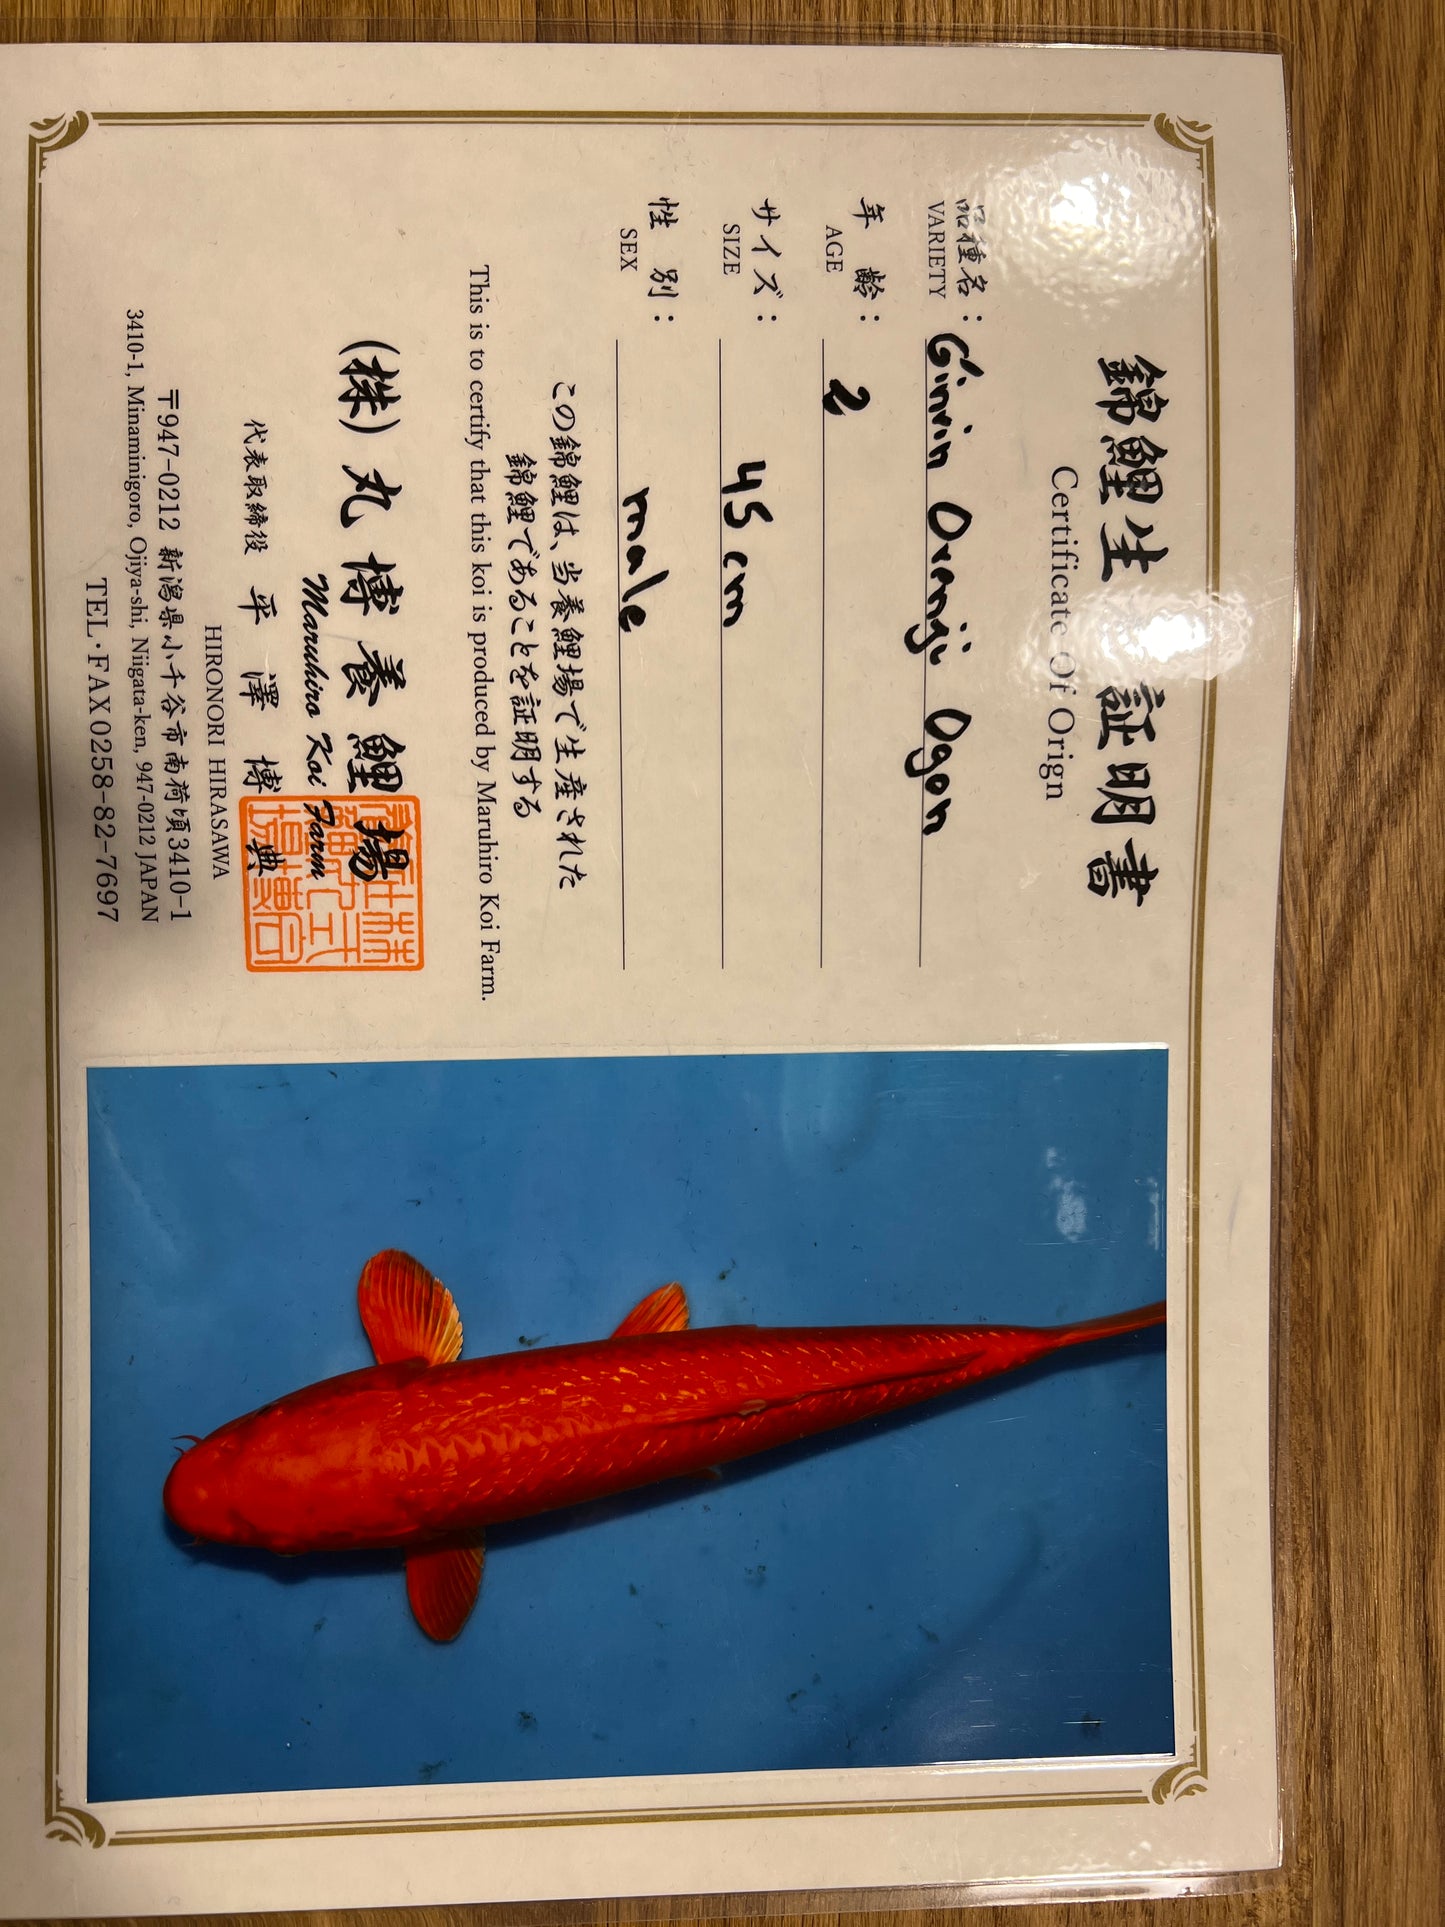 錦鯉生 証明書
Certificate Of Orign
品種名：
VARIETY
Ginrin Orenji Ogon
年 齢：
AGE
2
サイズ：
SIZE
45 cm
性 別：
SEX
male
この錦鯉は、当養鯉場で生産された
錦鯉であることを証明する
This is to certify that this koi is produced by Maruhiro Koi Farm.
(株) 丸博養鯉場
Maruhiro Koi Farm
代表取締役 平 澤 博 典
HIRONORI HIRASAWA
〒947-0212 新潟県小千谷市南荷頃3410-1
3410-1, Minaminigoro, Ojiya-shi, Niigata-ken, 947-0212 JAPAN
TEL・FAX 0258-82-7697